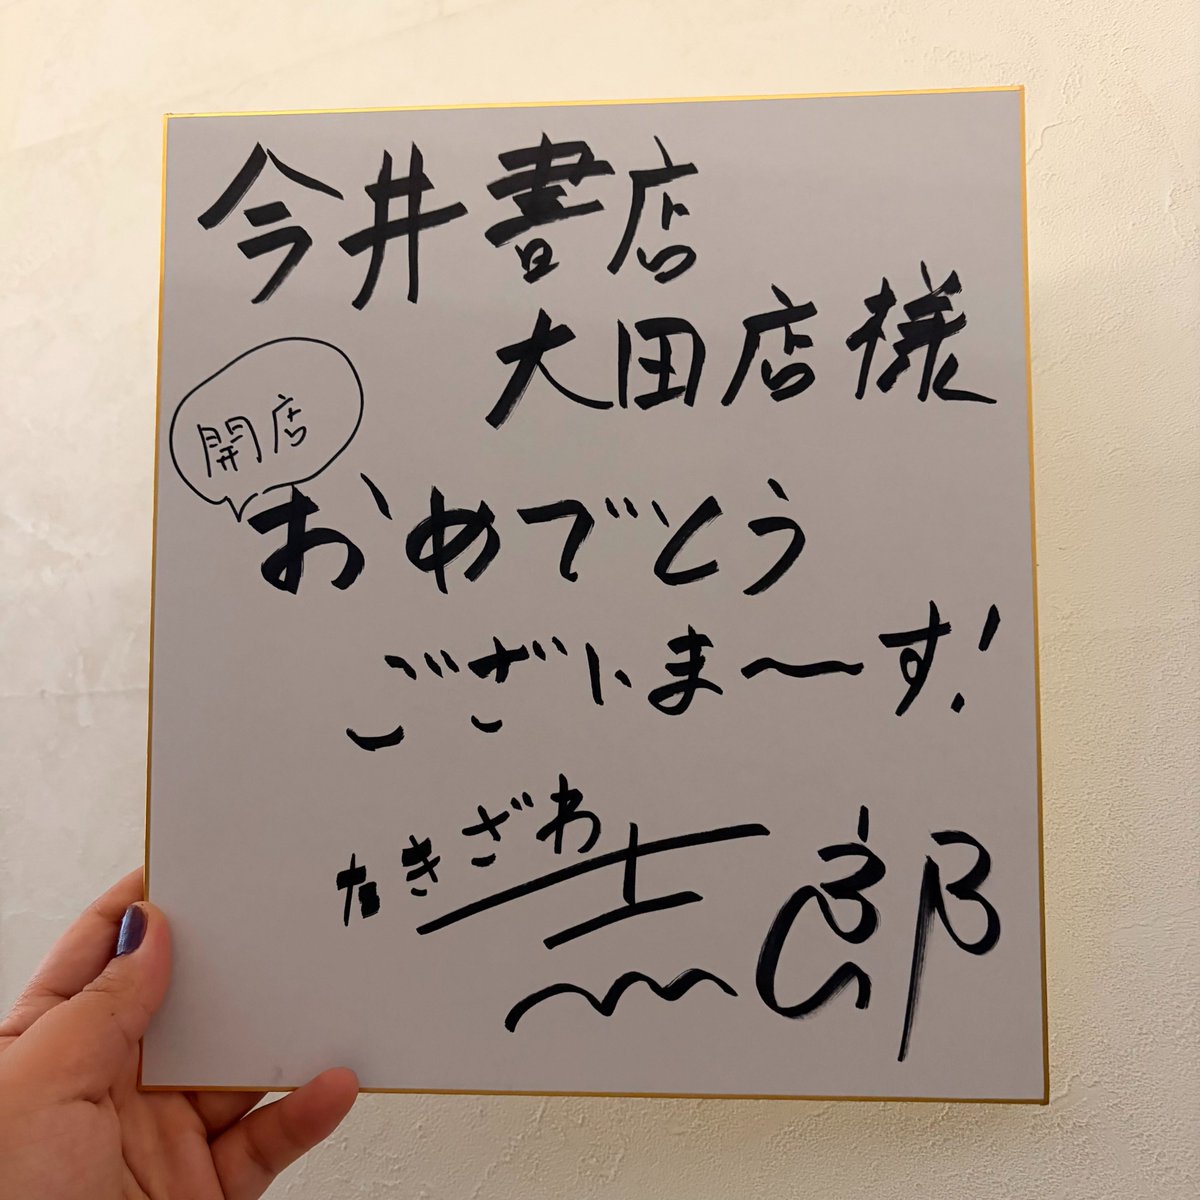 今井書店
大田店様
開店
おめでとう
ございま〜す!
たきざわ
志郎